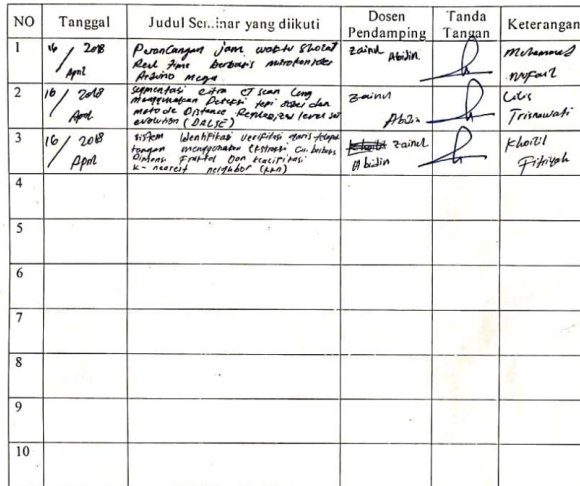 NO Tanggal Judul Seminar yang diikuti Dosen Pendamping Tanda Tangan Keterangan
1 16/April 2018 Perancangan jam waktu Sholat Real Time berbasis mikrokontroler Arduino mega Zainul Abidin Muhammad
2 16/April 2018 segmentasi citra CT scan menggunakan Deteksi tepi dan metode Distance Regularized level set evolution Zainul Abidin Lilis Trisnawati
3 16/April 2018 sistem Identifikasi verifikasi garis telapak tangan menggunakan Ekstraksi Ciri berbasis Dimensi Fraktal Dan klasifikasi K-nearest neighbor (KNN) Zainul Abidin Khoiril Fitriyah
4
5
6
7
8
9
10